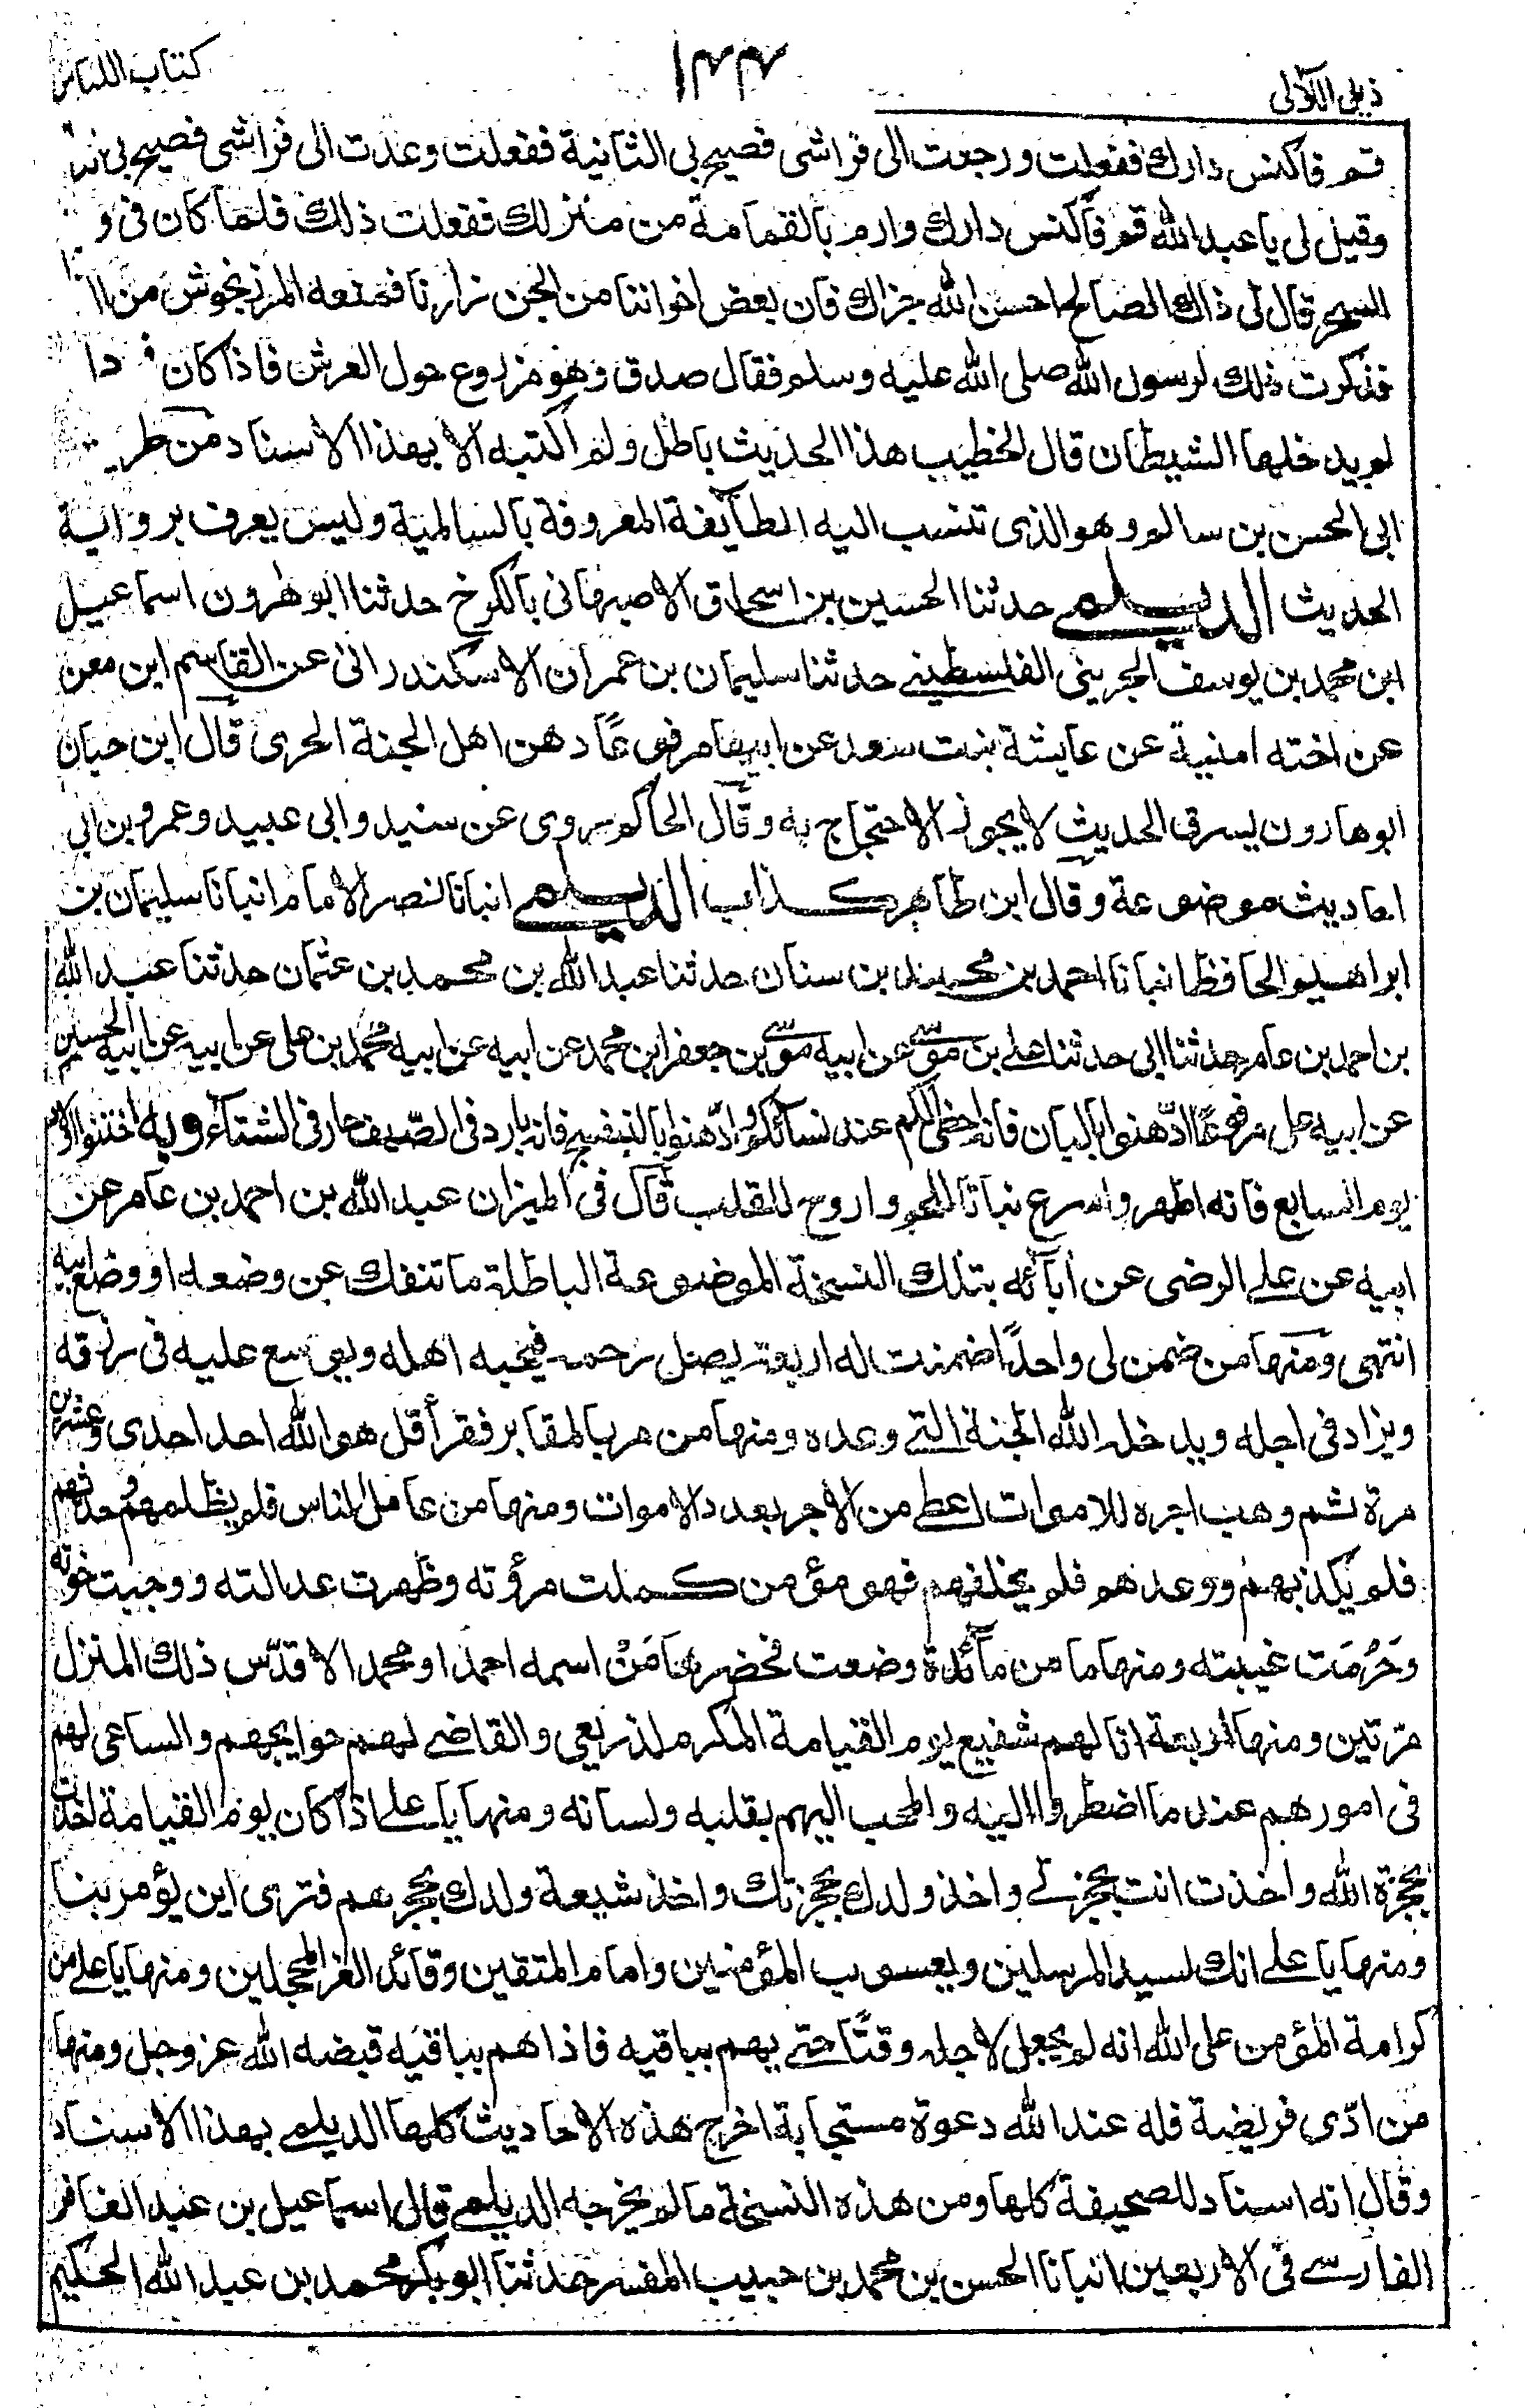 كتاب اللباس
١٣٣
ذيل اللآلى
قم فاكنس دارك ففعلت ورجعت الى فراشى فصيح بى الثانية ففعلت وعدت الى فراشى فصيح بى
وقيل لى يا عبد الله قم فاكنس دارك وارم بالقمامة من منزلك ففعلت ذلك فلما كان فى و
السحر قال لى ذاك الصالح احسن الله جزاك فان بعض اخواننا من الجن زارنا فمنعه المرزنجوش من
فذكرت ذلك لرسول الله صلى الله عليه وسلم فقال صدق وهو مزروع حول العرش فاذا كان دا
لم يدخلها الشيطان قال الخطيب هذا الحديث باطل ولم اكتبه الا بهذا الاسناد من طر
ابى الحسن بن سالم وهو الذى تنسب اليه الطائفة المعروفة بالسالمية وليس يعرف برواية
الحديث الديلمے حدثنا الحسين بن اسحاق الاصبهانى بالكرخ حدثنا ابو هرون اسماعيل
ابن محمد بن يوسف الجرينى الفلسطينے حدثنا سليمان بن عمران الاسكندرانى عن القاسم ابن معن
عن اخته امنية عن عايشة بنت سعد عن ابيها مرفوعًا دهن اهل الجنة الحرى قال ابن حبان
ابو هارون يسرق الحديث لا يجوز الاحتجاج به وقال الحاكم روى عن سنيد وابى عبيد وعمرو بن ابى
احاديث موضوعة وقال ابن طاهر كذاب الديلمے انبانا نصر الامام انبانا سليمان بن
ابراهيم الحافظ انبانا احمد بن محمد بن سنان حدثنا عبد الله بن محمد بن عثمان حدثنا عبد الله
بن احمد بن عامر حدثنا ابى حدثنا علے بن موسے عن ابيه موسے بن جعفر ابن محمد عن ابيه عن ابيه محمد بن على عن ابيه عن ابيه الحسين
عن ابيه على مرفوعًا ادّهنوا بالبان فانه احظى لكم عند نسائكم وادّهنوا بالبنفسج فانه بارد فى الصّيف حار فى الشتاء وبه اختنوا
يوم السابع فانه اطهر واسرع نباتا للحم واروح للقلب قال فى الميزان عبد الله بن احمد بن عامر عن
ابيه عن علے الرضى عن آبائه بتلك النسخة الموضوعة الباطلة ما تنفك عن وضعه او وضع ابيه
انتهى ومنها من ضمن لى واحدًا ضمنت له اربعة يصل رحمه فيحبه اهله ويوسع عليه فى رزقه
ويزاد فى اجله ويدخله الله الجنة التے وعده ومنها من مر بالمقابر فقرأ قل هو الله احد احدى وعشرين
مرة ثم وهب اجره للاموات اعطے من الاجر بعدد الاموات ومنها من عامل الناس فلم يظلمهم وحدثهم
فلم يكذبهم ووعدهم فلم يخلفهم فهو مؤمن كملت مرؤته وظهرت عدالته ووجبت خوته
وحَرُمَت غيبته ومنها ما من مائدة وضعت فحضرها مَنْ اسمه احمد او محمد الا قدّس ذلك المنزل
مرّتين ومنها اربعة انا لهم شفيع يوم القيامة المكرم لذريعى والقاضے لهم حوايجهم والساعى لهم
فى امورهم عند ما اضطروا اليه والمحب اليهم بقلبه ولسانه ومنها يا علے اذا كان يوم القيامة اخذت
بحجزة الله واخذت انت بحجزتے واخذ ولدك بحجزتك واخذ شيعة ولدك بحجزهم فترى اين يؤمر بنا
ومنها يا علے انك لسيد المرسلين ويعسوب المؤمنين وامام المتقين وقائد الغر المحجلين ومنها يا علے من
كرامة المؤمن على الله انه لم يجعل لاجله وقتًا حتے يهم بباقيه فاذا هم بباقيه قبضه الله عز وجل ومنها
من ادّى فريضة فله عند الله دعوة مستجابة اخرج هذه الاحاديث كلها الديلمے بهذا الاسناد
وقال انه اسناد للصحيفة كلها ومن هذه النسخة ما لم يخرجه الديلمے قال اسماعيل بن عبد الغافر
الفارسے فى الاربعين انبانا الحسن بن محمد بن حبيب المفسر حدثنا ابو بكر محمد بن عبد الله الحكيم